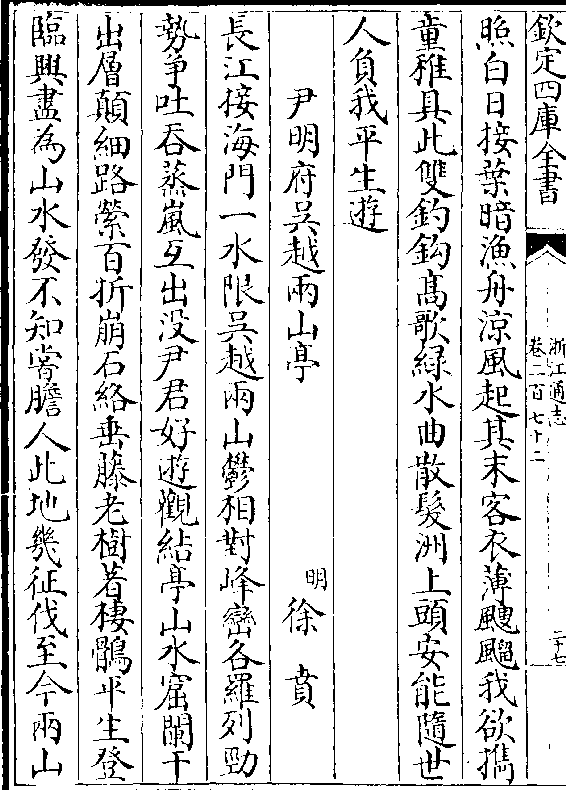 欽定四庫全書
浙江通志
卷二百七十二
二十七
照白日接葉暗漁舟涼風起其末客衣薄颼飀我欲攜
童稚具此雙釣鈎髙歌緑水曲散髮洲上頭安能隨世
人負我平生遊
尹明府吳越兩山亭
明徐賁
長江接海門一水限吳越兩山鬱相對峰巒各羅列勁
勢爭吐吞蒸嵐互出没尹君好遊觀結亭山水窟闌干
出層顛細路縈百折崩石絡垂藤老樹着棲鶻平生登
臨興盡為山水發不知嘗膽人此地幾征伐至今兩山